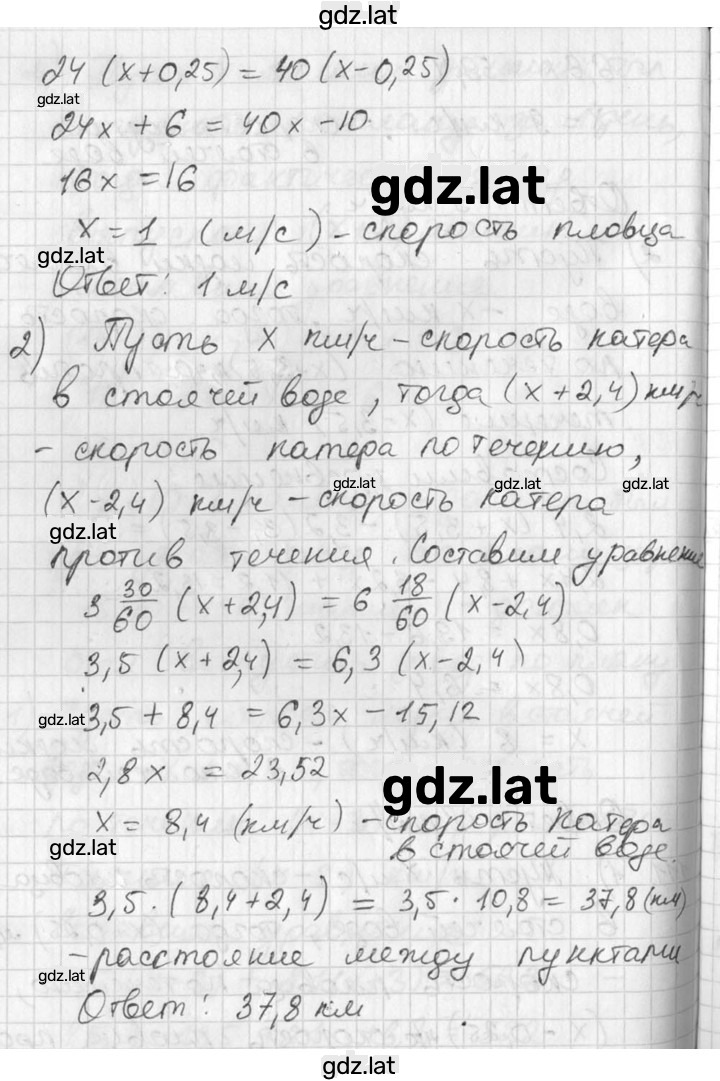 gdz.lat
24 (x+0,25) = 40 (x-0,25)
gdz.lat
24x + 6 = 40x - 10
16x = 16
gdz.lat
x = 1 (м/с) - скорость пловца
gdz.lat
Ответ: 1 м/с
2) Пусть x км/ч - скорость катера
в стоячей воде, тогда (x + 2,4) км/ч
- скорость катера по течению,
gdz.lat gdz.lat gdz.lat
(x - 2,4) км/ч - скорость катера
gdz.lat
против течения. Составим уравнение
3 30/60 (x + 2,4) = 6 18/60 (x - 2,4)
3,5 (x + 2,4) = 6,3 (x - 2,4)
gdz.lat
3,5 + 8,4 = 6,3x - 15,12
2,8x = 23,52
gdz.lat
x = 8,4 (км/ч) - скорость катера
gdz.lat
в стоячей воде.
3,5 · (8,4 + 2,4) = 3,5 · 10,8 = 37,8 (км)
- расстояние между пунктами
gdz.lat
Ответ: 37,8 км
gdz.lat